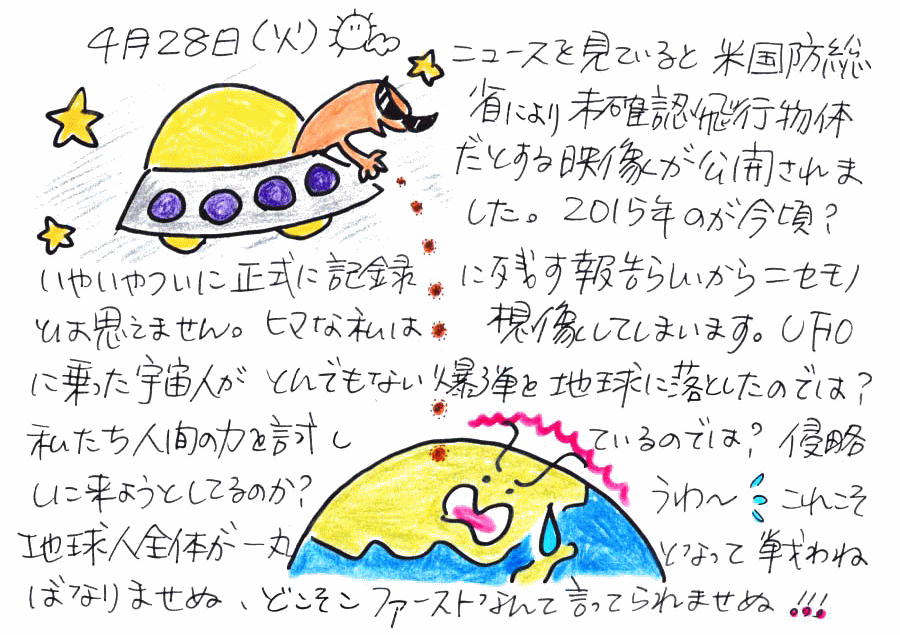 4月28日(火)
ニュースを見ていると 米国防総
省により未確認飛行物体
だとする映像が公開されま
した。2015年のが今頃?
いやいやついに正式に記録に残す報告らしいからニセモノ
とは思えません。ヒマな私は想像してしまいます。UFO
に乗った宇宙人がとんでもない爆弾を地球に落としたのでは?
私たち人間の力を試しているのでは?侵略
しに来ようとしてるのか?うわ〜これこそ
地球人全体が一丸となって戦わね
ばなりませぬ、どこそこファーストなんて言ってられませぬ!!!